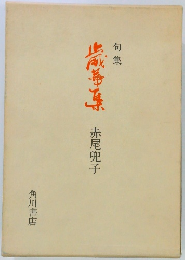 句集
歳華集
赤尾兜子
角川書店